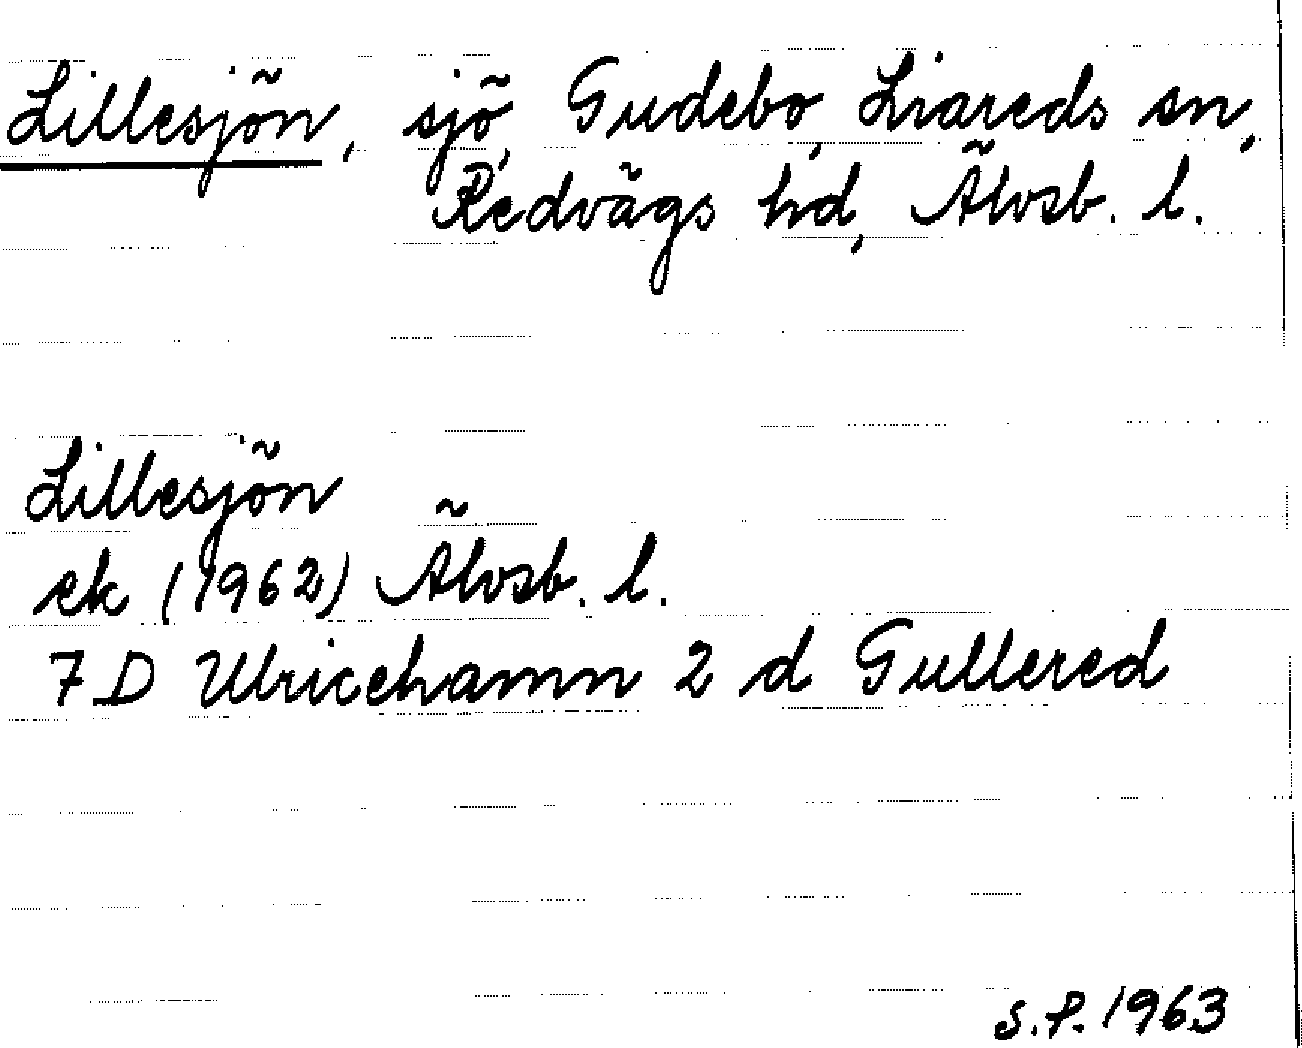 Lillesjön, sjö, Gudebo, Liareds sn,
Redvägs hd, Älvsb. l.
Lillesjön
ek (1962) Älvsb. l.
7 D Ulricehamn 2 d Gullered
S.P. 1963